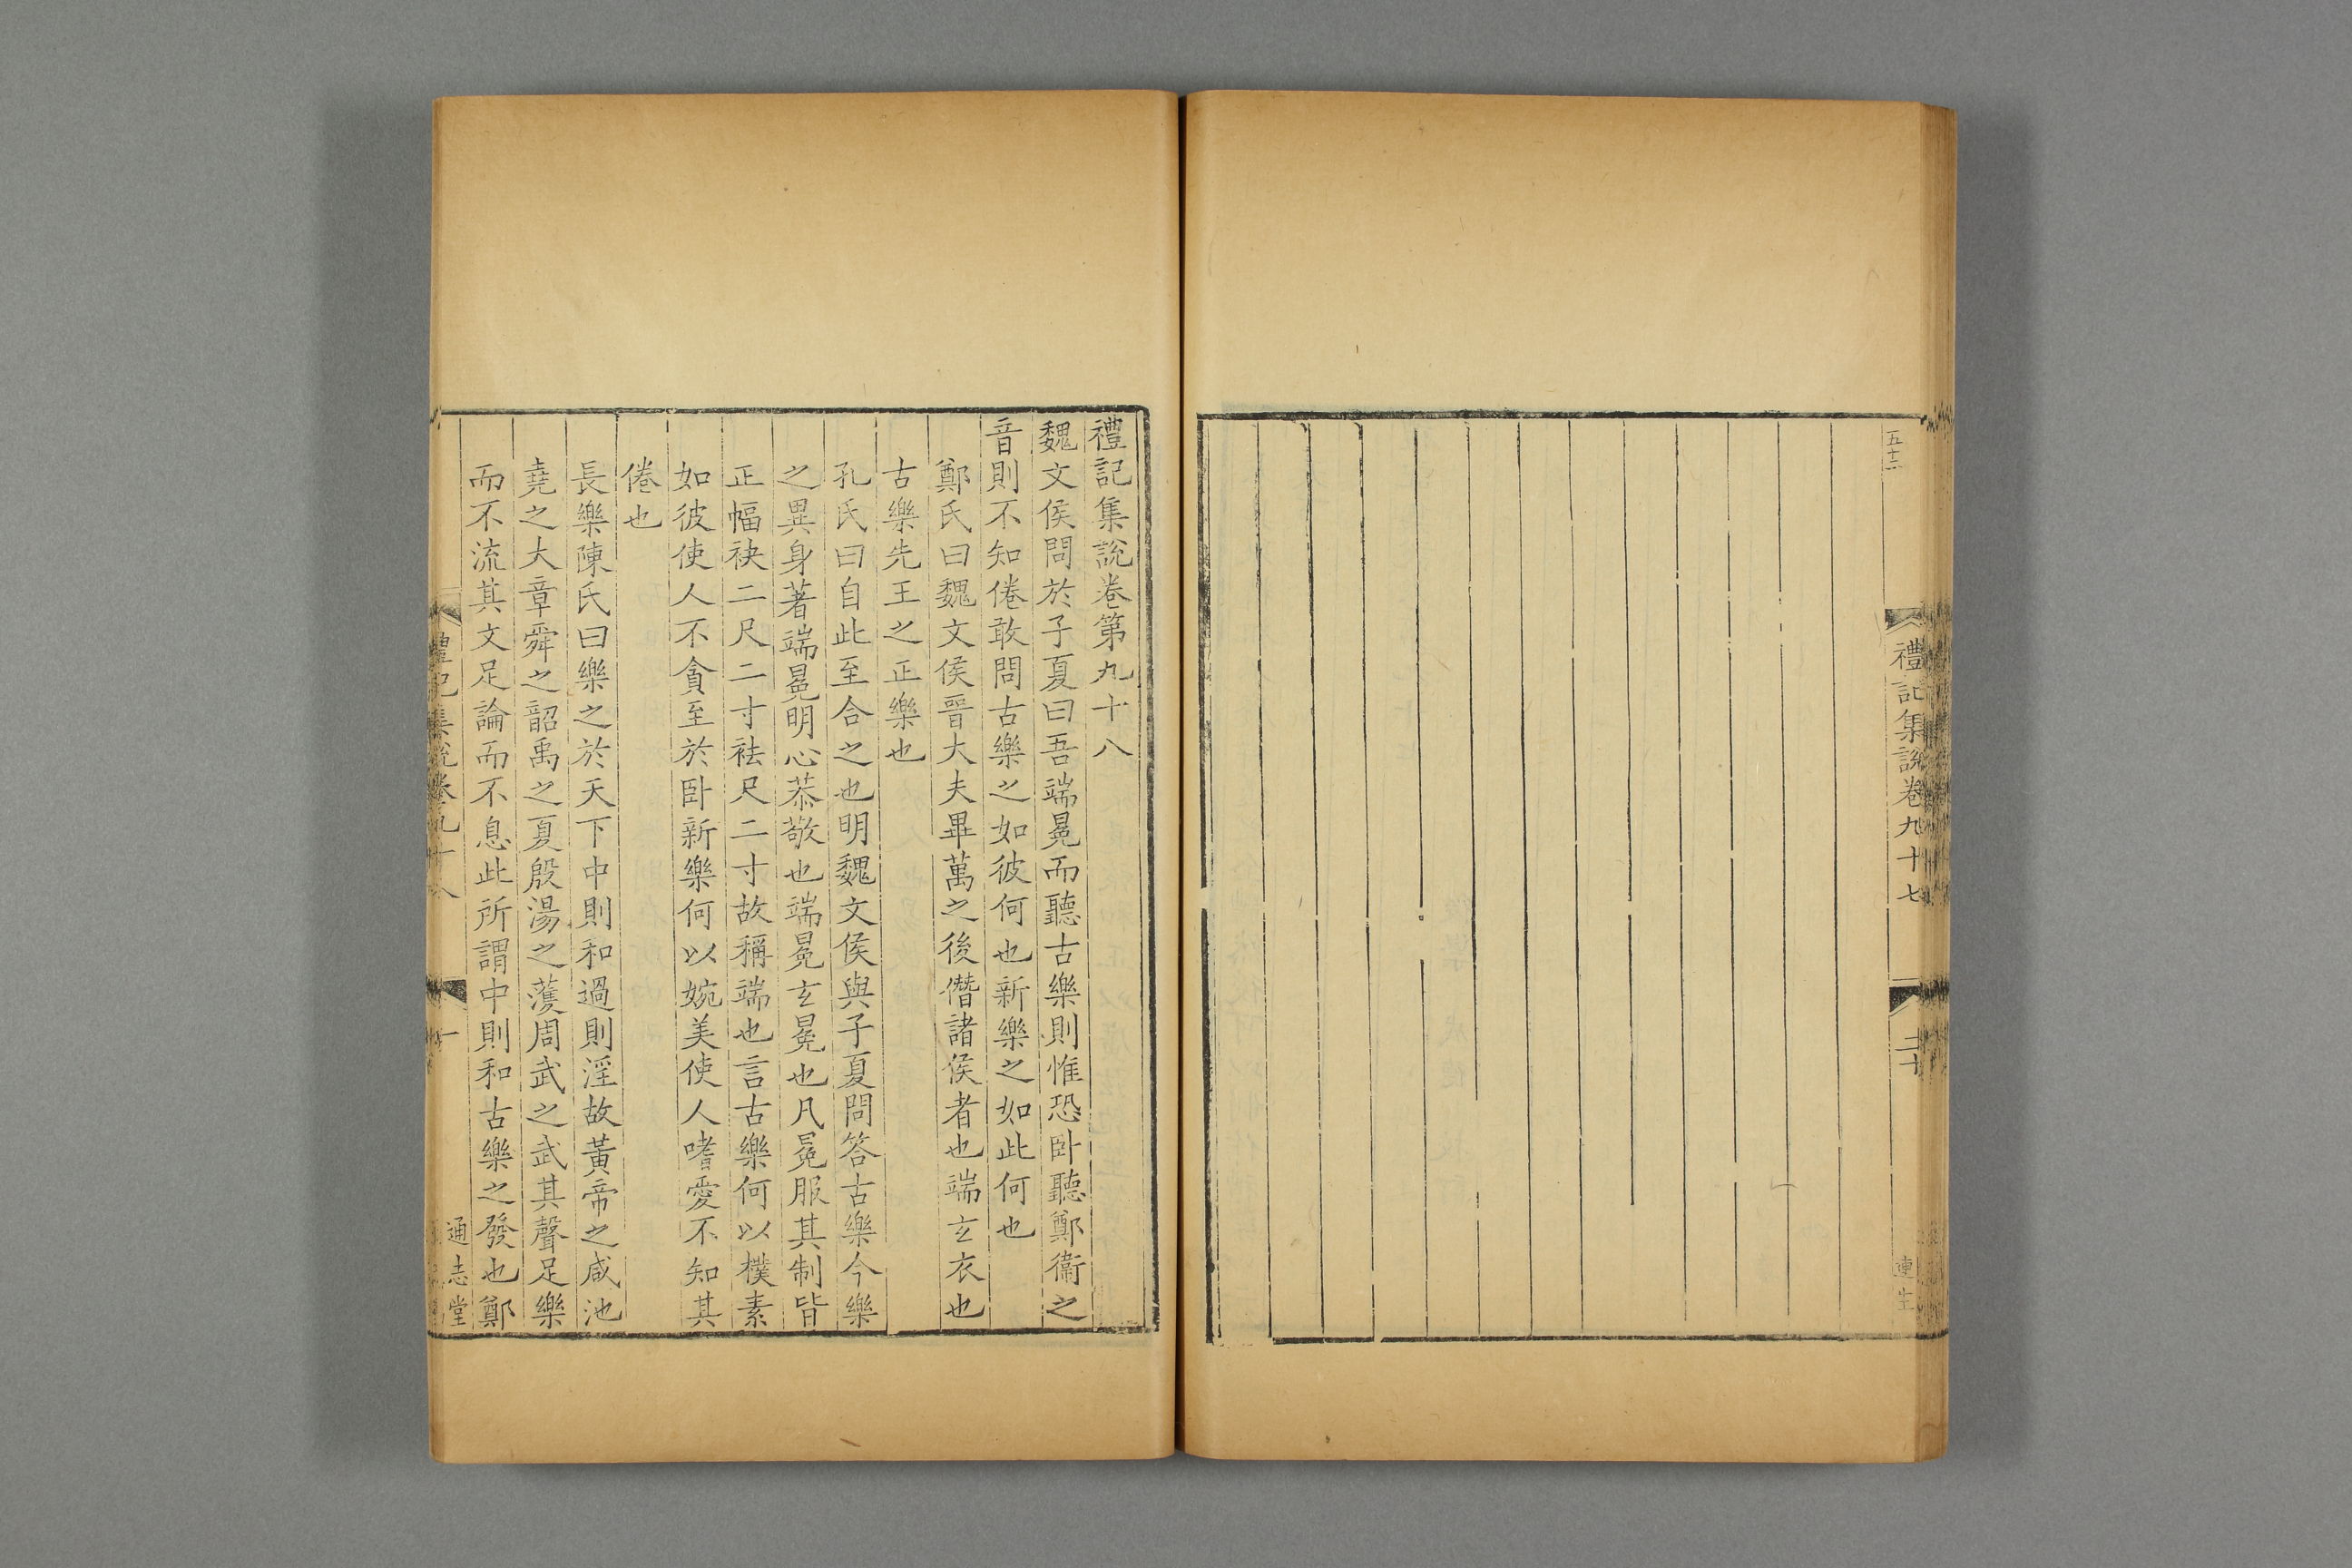 五十二
禮記集說卷九十七
二十
連生
禮記集說卷第九十八
魏文侯問於子夏曰吾端冕而聽古樂則惟恐卧聽鄭衞之
音則不知倦敢問古樂之如彼何也新樂之如此何也
鄭氏曰魏文侯晉大夫畢萬之後僭諸侯者也端玄衣也
古樂先王之正樂也
孔氏曰自此至合之也明魏文侯與子夏問答古樂今樂
之異身著端冕明心恭敬也端冕玄冕也凡冕服其制皆
正幅袂二尺二寸袪尺二寸故稱端也言古樂何以樸素
如彼使人不貪至於卧新樂何以婉美使人嗜愛不知其
倦也
長樂陳氏曰樂之於天下中則和過則淫故黃帝之咸池
堯之大章舜之韶禹之夏殷湯之濩周武之武其聲足樂
而不流其文足論而不息此所謂中則和古樂之發也鄭
禮記集說卷九十八
一
通志堂